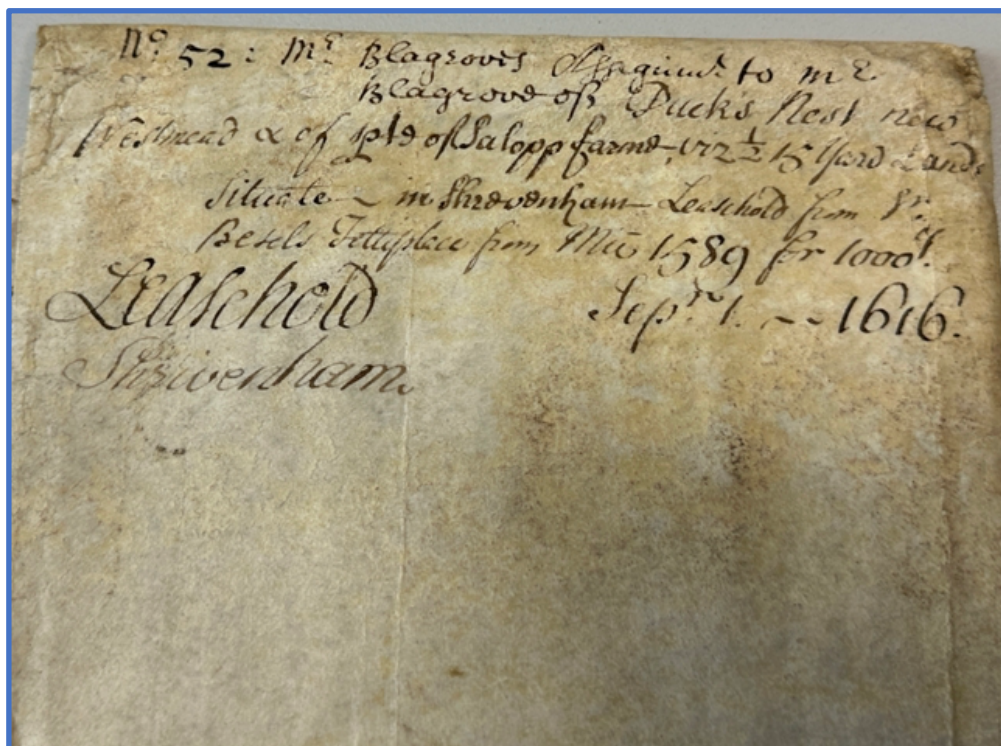 No 52: Mr Blagroves Assignmt to Mr
Blagrove of Ducks Nest new
Westmead & of pte of Salopp farme, viz ½ 15 Yard Lands
Situate in Shrevenham Leasehold from Sr
Besels Fettiplace from Mic 1589 for 1000
Leasehold Sepr 1. 1616.
Shrivenham